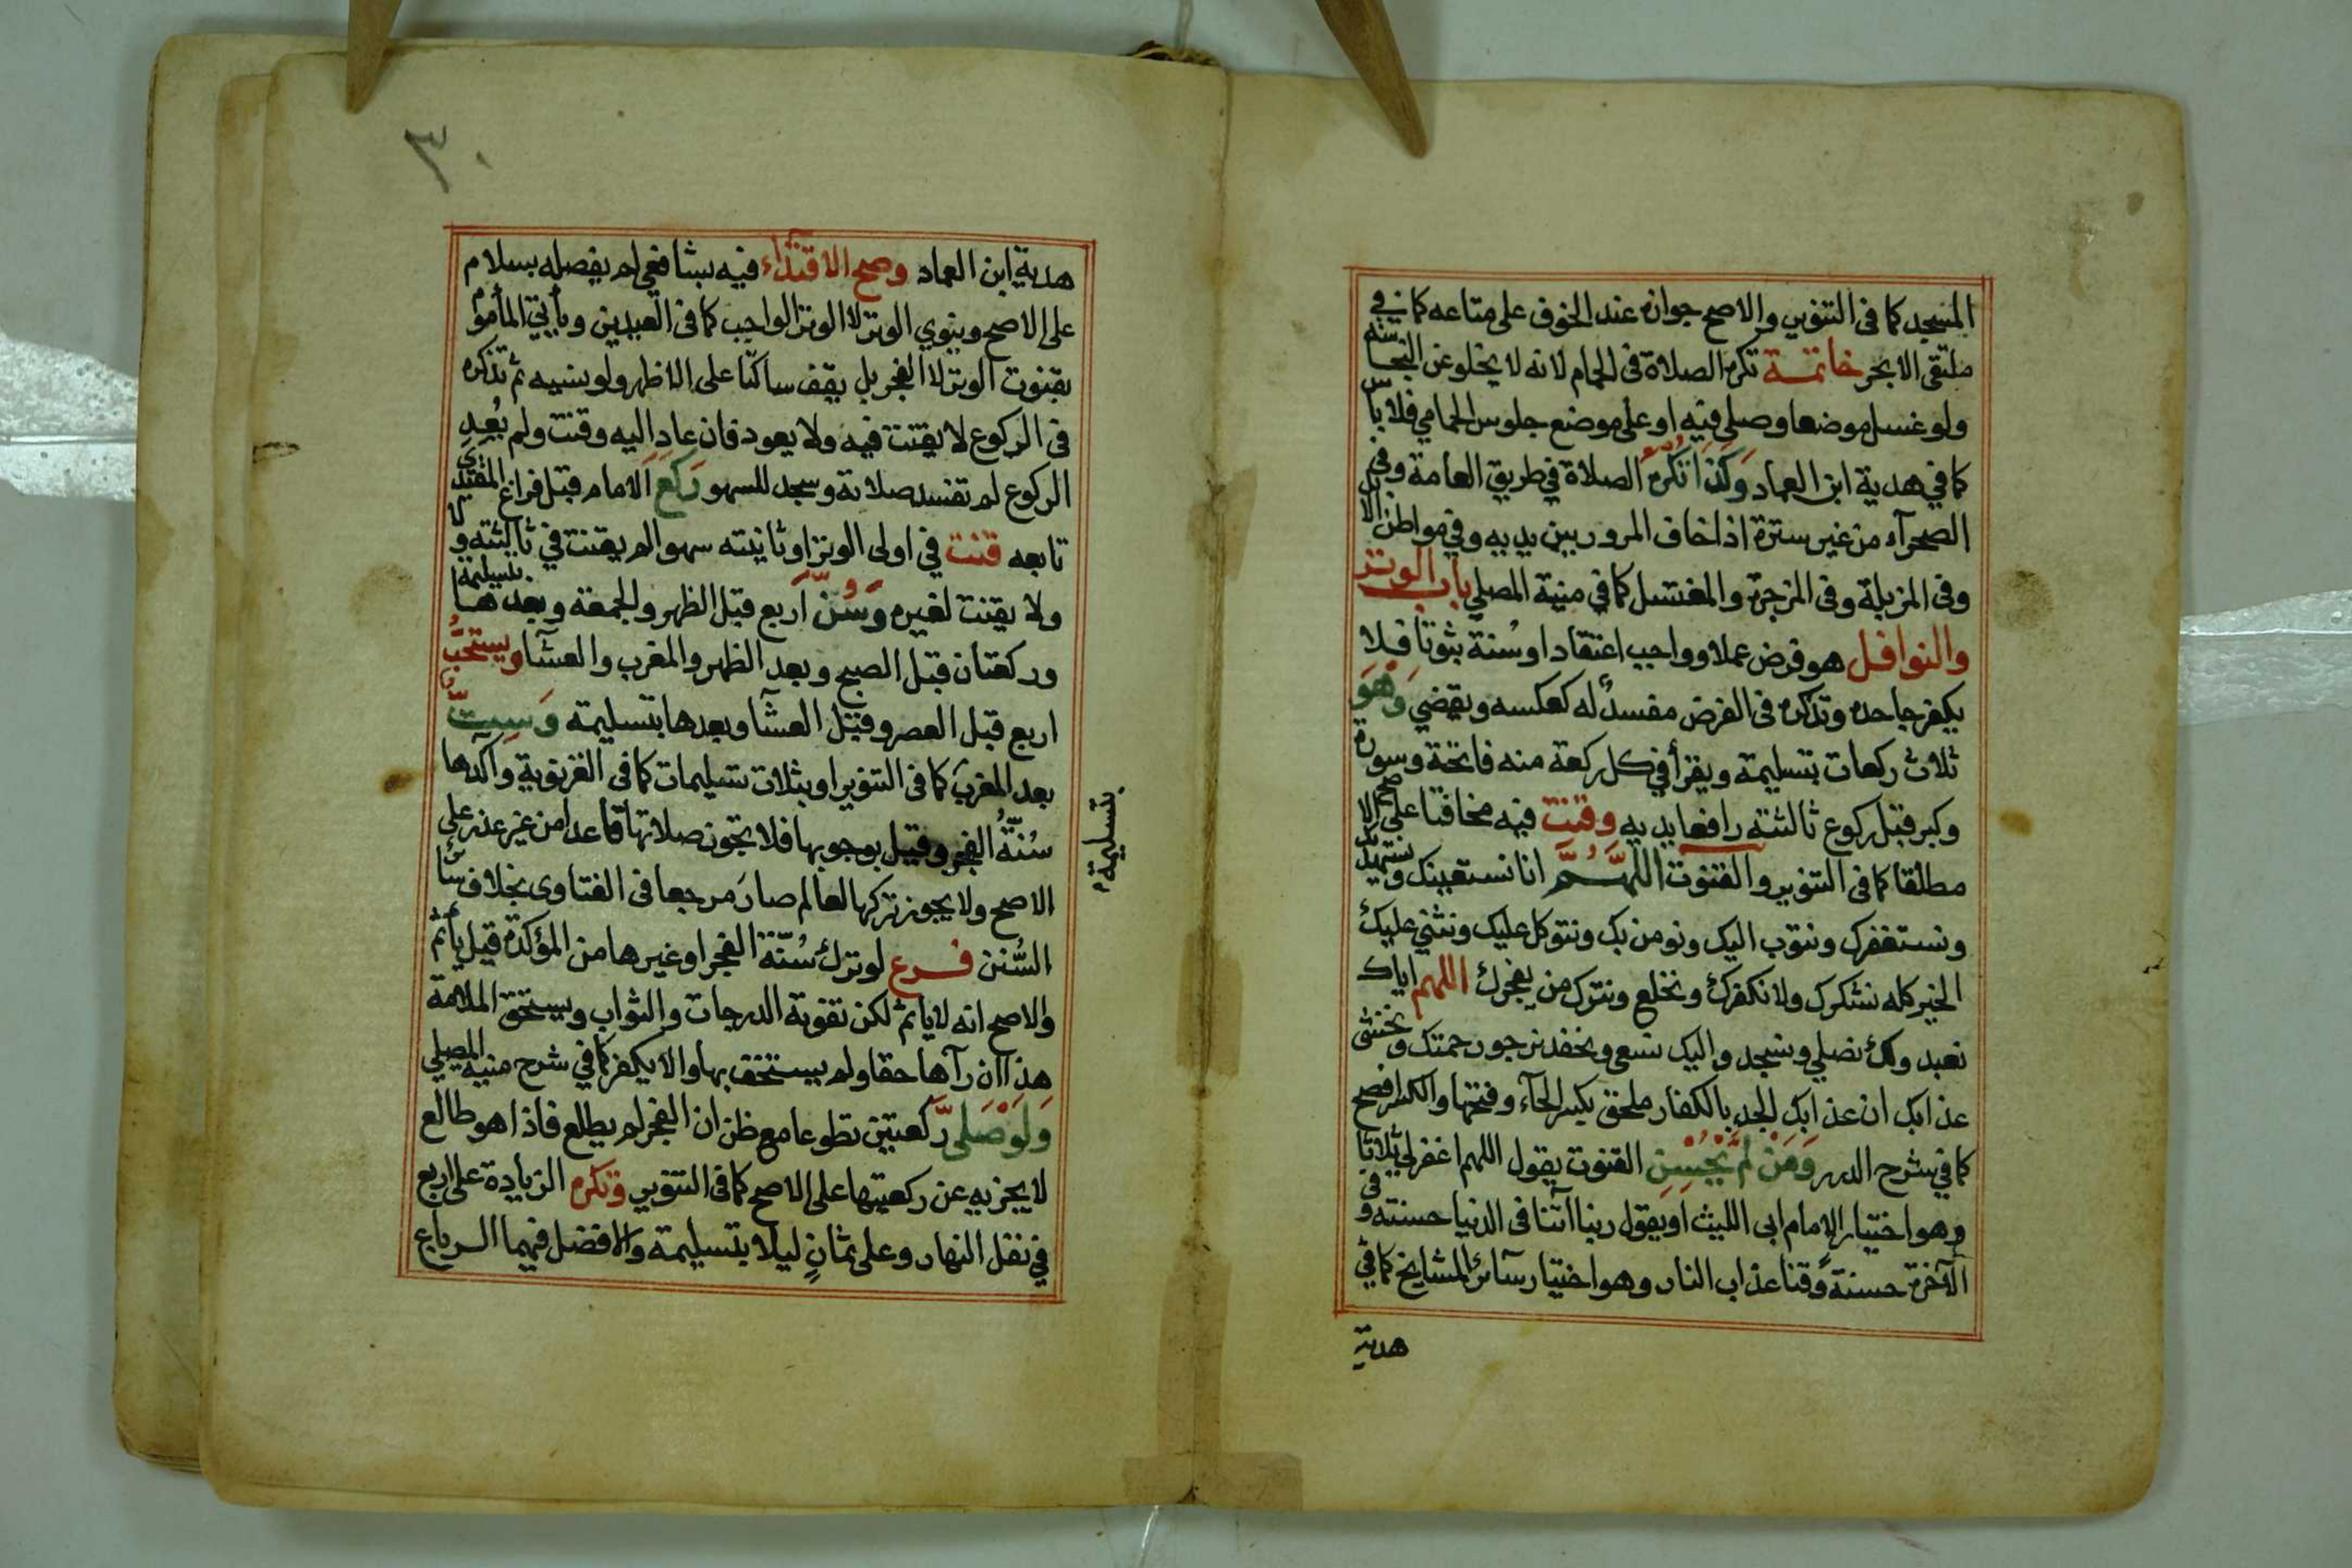 المسجد كما فى التنوير والاصح جوازه عند الخوف على متاعه كما في
ملتقى الابحر خاتمة تكره الصلاة فى الحمام لانه لا يخلو عن النجاسة
ولو غسل موضعا وصلى فيه او على موضع جلوس الحمامي فلا بأس
كما في هدية ابن العماد وَكَذَا تُكْرَهُ الصلاة في طريق العامة وفى
الصحرآء من غير سترة اذا خاف المرور بين يديه وفي مواطن الابل
وفى المزبلة وفى المزجرة والمغتسل كما في منية المصلي باب الوتر
والنوافل هو فرض عملا وواجب اعتقادا وسُنة ثبوتا فلا
يكفر جاحده وتذكره فى الفرض مفسدٌ له كعكسه ويقضي وَهُوَ
ثلاث ركعات بتسليمة ويقرأ في كل ركعة منه فاتحة وسورة
وكبر قبل ركوع ثالثته رافعا يديه وقنت فيه مخافتا على الاصح
مطلقا كما فى التنوير والقنوت اللّهُمَّ انا نستعينك ونستهديك
ونستغفرك ونتوب اليك ونومن بك ونتوكل عليك ونثني عليك
الخير كله نشكرك ولا نكفرك ونخلع ونترك من يفجرك اللهم اياك
نعبد ولك نصلي ونسجد واليك نسعى ونحفد نرجو رحمتك ونخشى
عذابك ان عذابك الجد بالكفار ملحق بكسر الحآء وفتحها والكسر افصح
كما في شرح الدرر وَمَنْ لَمْ يُحْسِنِ القنوت يقول اللهم اغفر لي ثلاثا
وهو اختيار الامام ابى الليث او يقول ربنا اتنا فى الدنيا حسنته وفى
الآخرة حسنةً وقنا عذاب النار وهو اختيار سآئر المشايخ كما في
هدية
٣٠
هدية ابن العماد وصح الاقتداء فيه بشافعي لم يفصله بسلام
على الاصح وينوي الوتر لا الوتر الواجب كما فى العيدين ويأتي المأموم
بقنوت الوتر لا الفجر بل يقف ساكتا على الاظهر ولو نسيه ثم تذكره
فى الركوع لا يقنت فيه ولا يعود فان عاد اليه وقنت ولم يُعِدِ
الركوع لم تفسد صلاته وسجد للسهو رَكَعَ الامام قبل فراغ المقتدي
تابعه قنت في اولى الوتر او ثانيته سهوا لم يقنت في ثالثته
ولا يقنت لغيره وَسُنَّ اربع قبل الظهر والجمعة وبعدها بتسليمة
وركعتان قبل الصبح وبعد الظهر والمغرب والعشآ ويستحبُّ
اربع قبل العصر وقبل العشآ وبعدها بتسليمة وَسِتٌّ
بعد المغرب كما فى التنوير او بثلاث تسليمات كما فى الغزنوية وآكدها
سُنَّةُ الفجر وقيل بوجوبها فلا تجوز صلاتها قاعدا من غير عذر على
الاصح ولا يجوز تركها لعالم صار مرجعا فى الفتاوى بخلاف سآئر
السُّنن فرع لو ترك سُنّة الفجر او غيرها من المؤكدة قيل يأثم
والاصح انه لا يأثم لكن تفوته الدرجات والثواب ويستحق الملامة
هذا ان رآها حقا ولم يستخف بها والا يكفر كما في شرح منية المصلي
وَلَوْ صَلَّى رَكعتين تطوعا مع ظن ان الفجر لم يطلع فاذا هو طالع
لا يجزيه عن ركعتيها على الاصح كما فى التنوير وتكره الزيادة على اربع
في نفل النهار وعلى ثمانٍ ليلا بتسليمة والافضل فيهما الرباع
بتسليمة